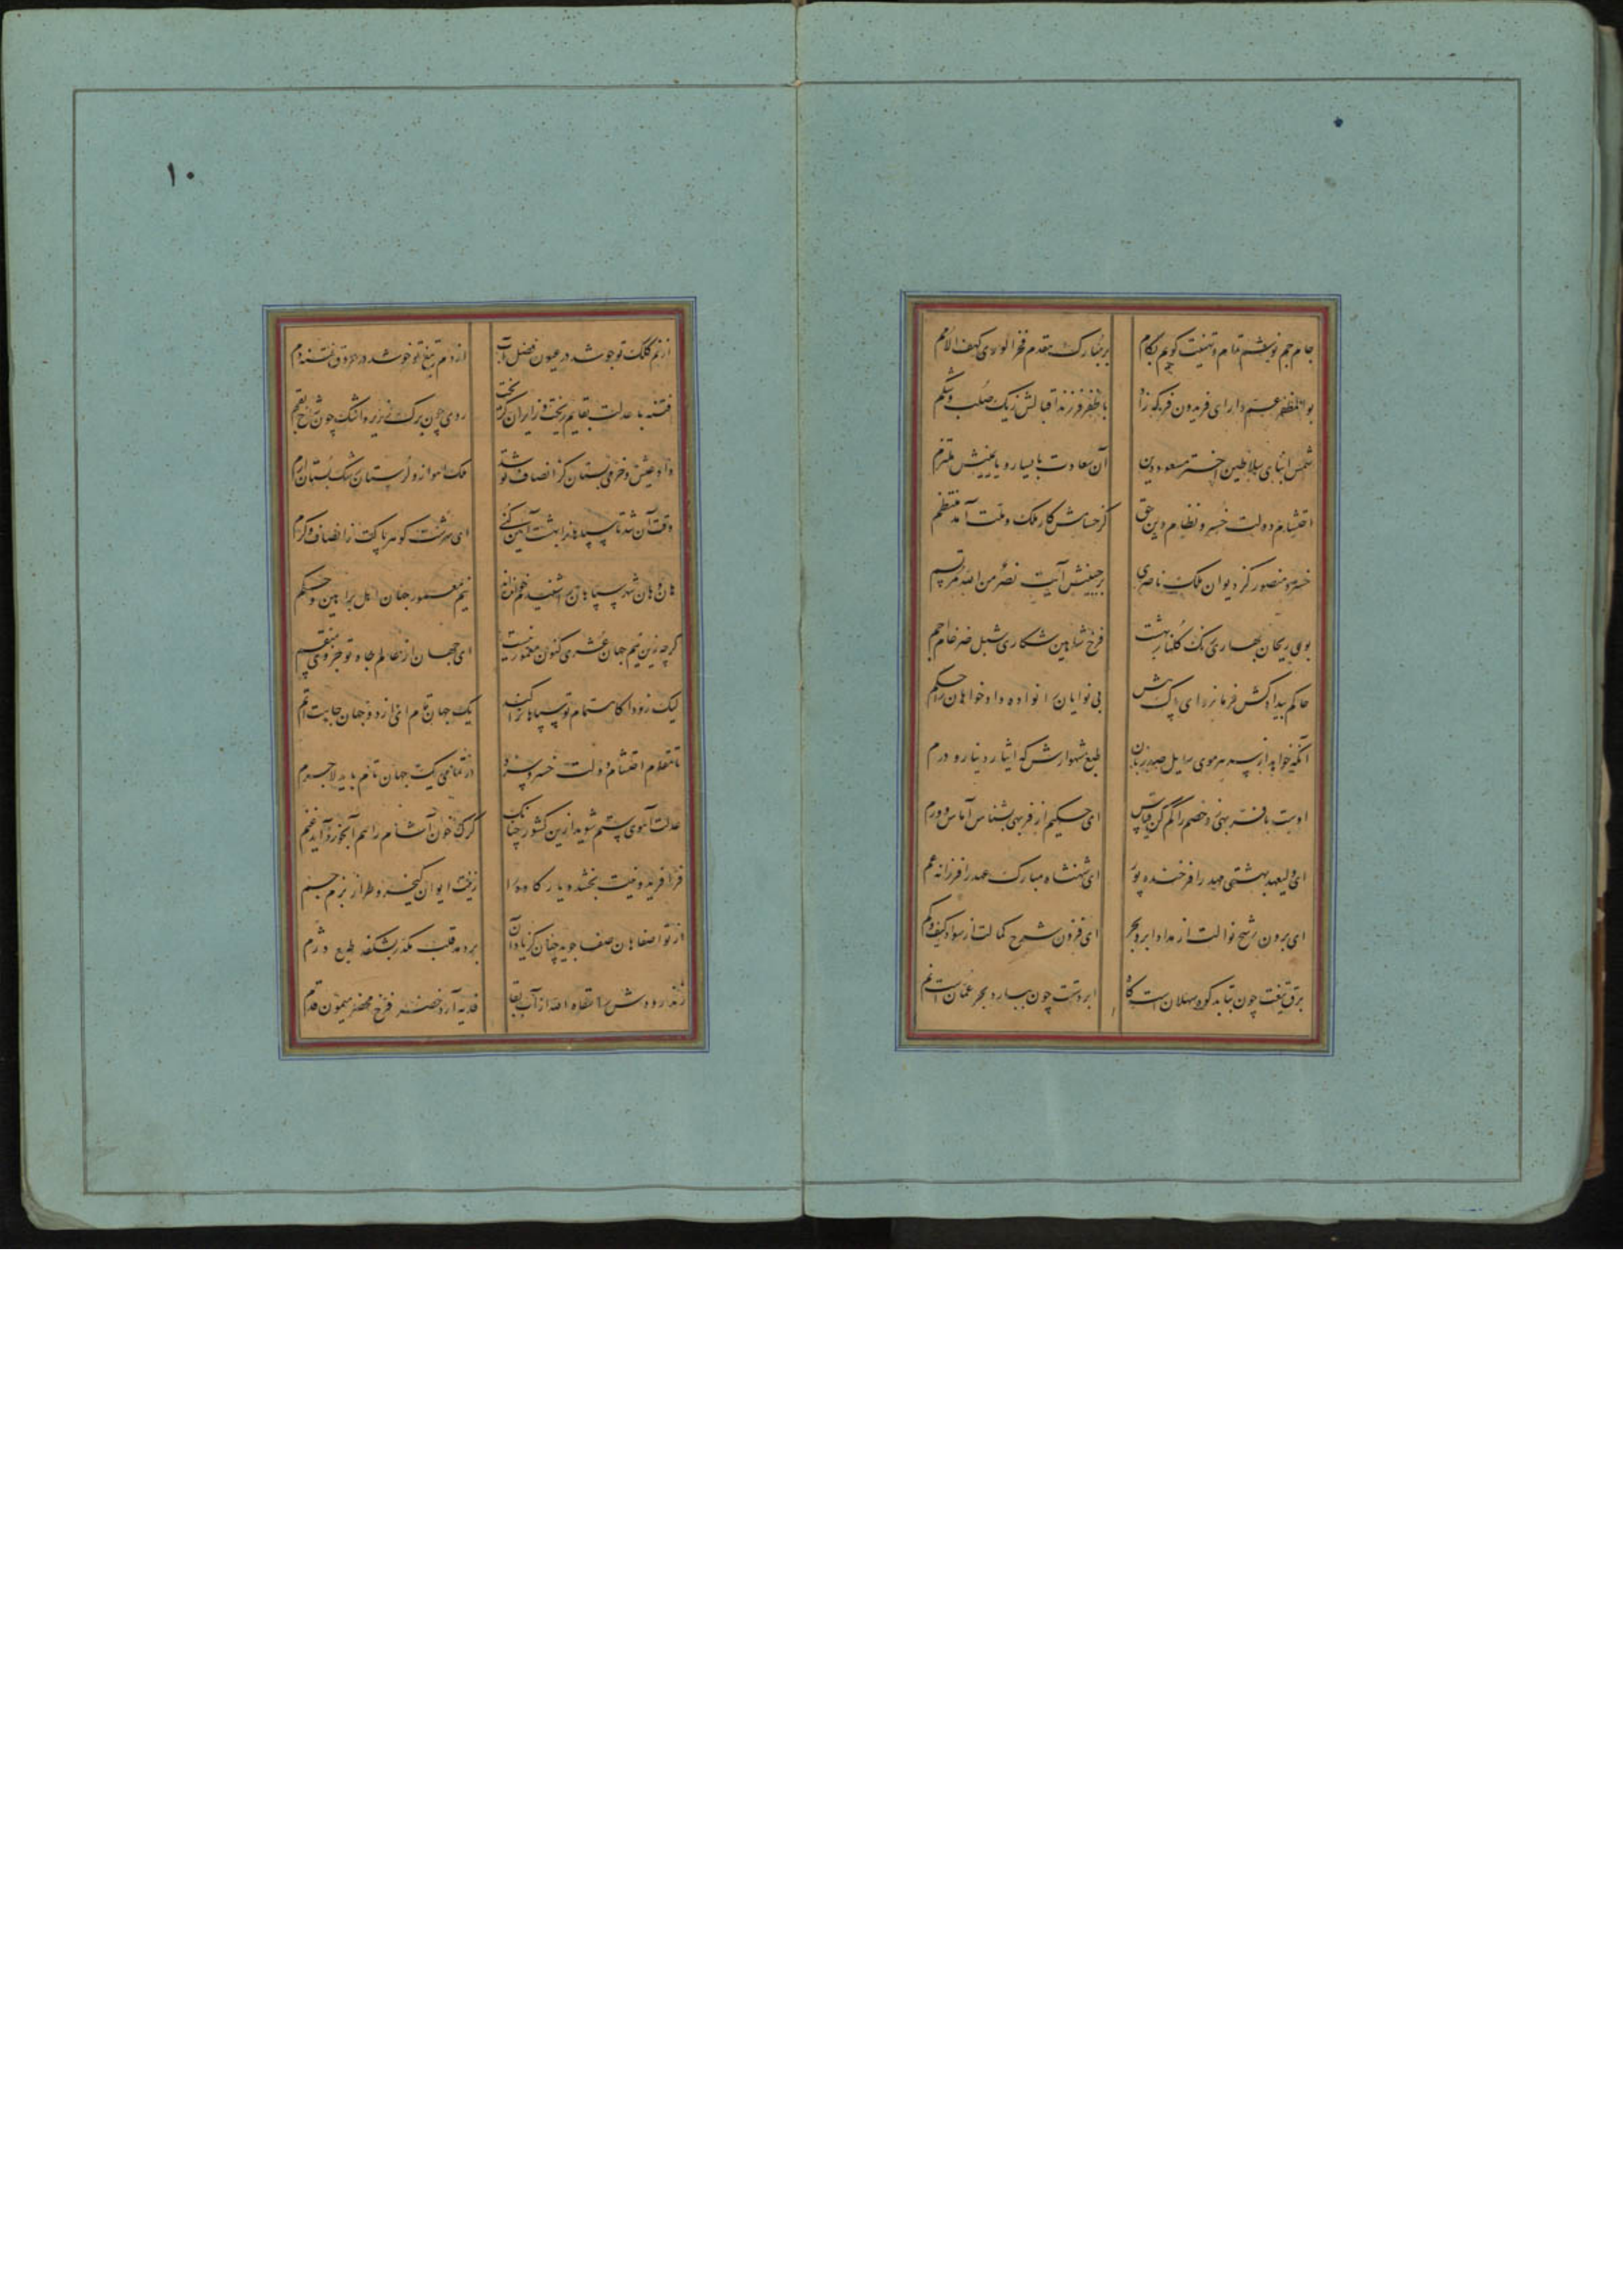 جام جم نوشم مدام و تهنیت گویم بکام بر مبارک مقدم فخر الوری کهف الامم
بوالمظفر عم دارای فریدون فر که زاد با ظفر فرزند اقبالش ز یک صلب و شکم
شمس ابنای سلاطین اختر مسعود دین آن سعادت با یسار و با یمینش ملتزم
احتشام دولت خسرو نظام دین حق کز حسامش کار ملک و ملت آمد منتظم
خسرو منصور کز دیوان ملک ناصری بر جبینش آیت نصر من الله مرتسم
بوی ریحان بهاری رنگ گلنار بهشت فرخ شاهین شکاری شبل ضرغام اجم
حاکم بیدادکش فرمانروای پاک بی نوایان را نوا ده دادخواهان را حکم
آنکه خواهد از پسر هر موی سایل صد زبان طبع شهوارش که ایثار دینار و درم
اوست با فر بهی و خصم را گم کن قیاس ای حکیم از فربهی بشناس آماس و ورم
ای ولیعهد بهشتی مهد را فرخنده پور ای شهنشاه مبارک عهد را فرزانه عم
ای برون رشح نوالت از مداد ابر و بحر ای فزون شرح کمالت از سواد کیف و کم
برق تیغت چون بتابد کوه سهلان است کاه ابر دستت چون ببارد بحر عمان است نم
۱۰
از نم کلک تو جوشد در عیون فضل آب از دم تیغ تو خوشد در عروق فتنه دم
فتنه با عدلت بقایم ریخت وز ایران گریخت روی چون برگ زریر و اشک چون شاخ بقم
داد و عیش و خرمی بستان کز انصاف تو شد ملک اهواز و لرستان رشک بستان ارم
وقت آن شد تا سپاهان را بهشت آیین کنی ای سرشت گوهر پاکت ز انصاف و کرم
هان و هان شهر سپاهان را شنیدستم نیم معمور جهان اهل براهین و حکم
گرچه زین نیم جهان عشری کنون معمور نیست ای جهان از عالم جاه تو جزوی منقسم
لیک زودا کاهتمام تو سپاهان را کند یک جهان تام ای از دو جهان جاهت اتم
تا مقام احتشام دولت خسرو شده در تمامی یک جهان تام باید لاجرم
عدلت آهوی ستم شوید ازین کشور چنانک گرگ خون آشام را سم آبخور آید غنم
فر فریدونیت بخشد یا رکا و را زیت ایوان کیخسرو طراز بزم جم
از تو اصفاهان صفا جوید چنان کز باد آن بردمد قلب مکدر بشکفد طبع دژم
زنده رودش را مقام از آب بقا فدیه آرد خضر فرخ محضر میمون قدم